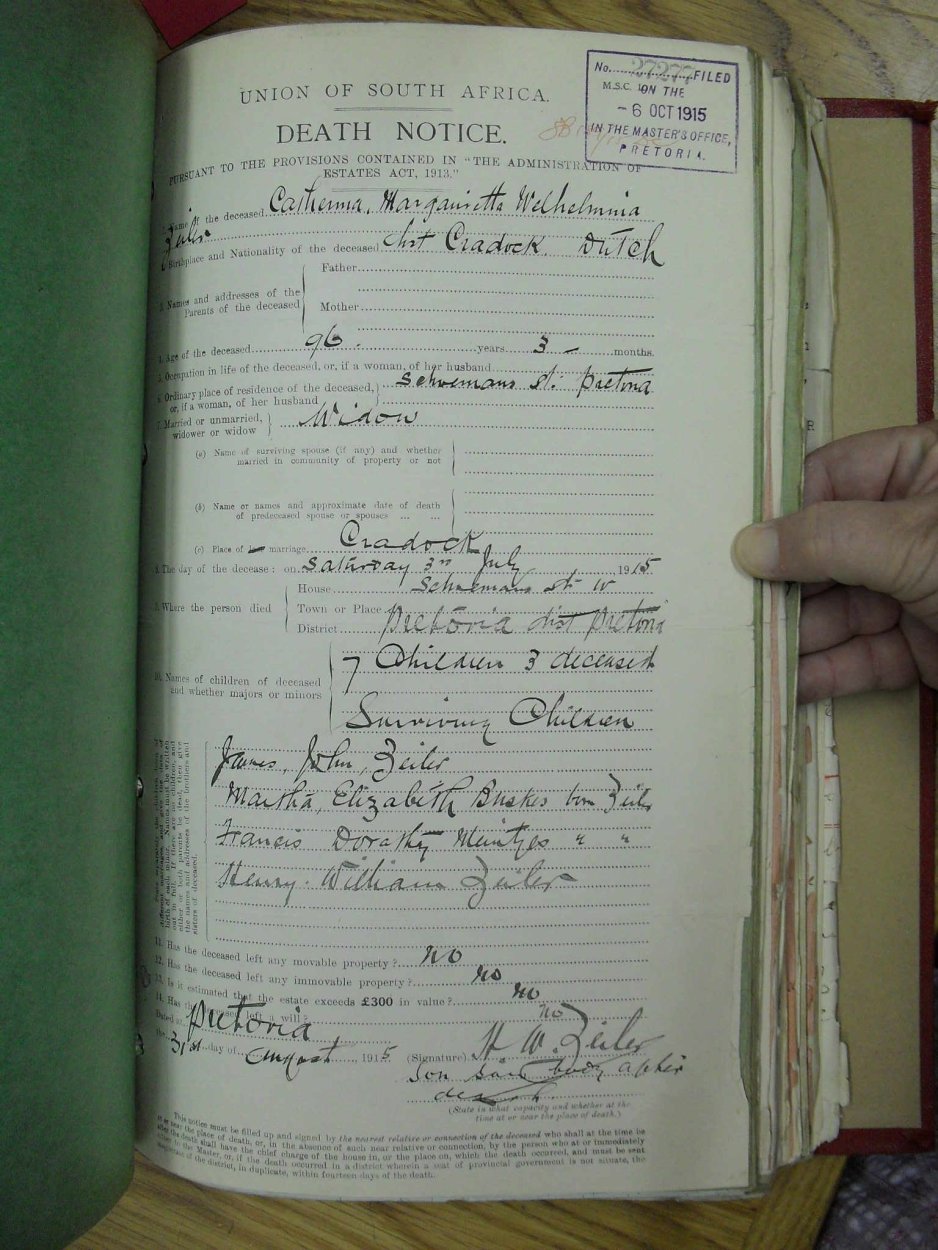 No. 27277 FILED
M.S.C. ON THE
- 6 OCT 1915
IN THE MASTER'S OFFICE,
PRETORIA.
UNION OF SOUTH AFRICA.
DEATH NOTICE.
PURSUANT TO THE PROVISIONS CONTAINED IN "THE ADMINISTRATION OF
ESTATES ACT, 1913."
Name of the deceased Catherina, Margauretta Welhelminia
Zeiler
Birthplace and Nationality of the deceased dist Cradock Dutch
3. Names and addresses of the
Parents of the deceased
Father
Mother
4. Age of the deceased 96 . years 3 - months.
5. Occupation in life of the deceased, or, if a woman, of her husband
6. Ordinary place of residence of the deceased,
or, if a woman, of her husband
Schoemans st. Pretoria
7. Married or unmarried,
widower or widow
Widow
(a) Name of surviving spouse (if any) and whether
married in community of property or not
(b) Name or names and approximate date of death
of predeceased spouse or spouses ... ...
(c) Place of marriage Cradock
8. The day of the decease: on Saturday 3rd July 1915
9. Where the person died
House Schoemans st W
Town or Place Pretoria dist Pretoria
District
10. Names of children of deceased
and whether majors or minors
7 Children 3 deceased
Surviving Children
either or both parents be dead, then give
the names and addresses of the brothers and
sisters of deceased.
James, John, Zeiler
Martha, Elizabeth Buskes born Zeiler
Francis Dorathy Meintjes " "
Henry. William Zeiler
11. Has the deceased left any movable property? no
12. Has the deceased left any immovable property? no
13. Is it estimated that the estate exceeds £300 in value? no
14. Has the deceased left a will? no
Dated at Pretoria
the 31st day of August 1915
(Signature) H W. Zeiler
Son saw body after
death.
(State in what capacity and whether at the
time at or near the place of death.)
This notice must be filled up and signed by the nearest relative or connection of the deceased who shall at the time be
at or near the place of death, or, in the absence of such near relative or connection, by the person who at or immediately
after the death shall have the chief charge of the house in, or the place on, which the death occurred, and must be sent
to the Master, or, if the death occurred in a district wherein a seat of provincial government is not situate, the
of the district, in duplicate, within fourteen days of the death.